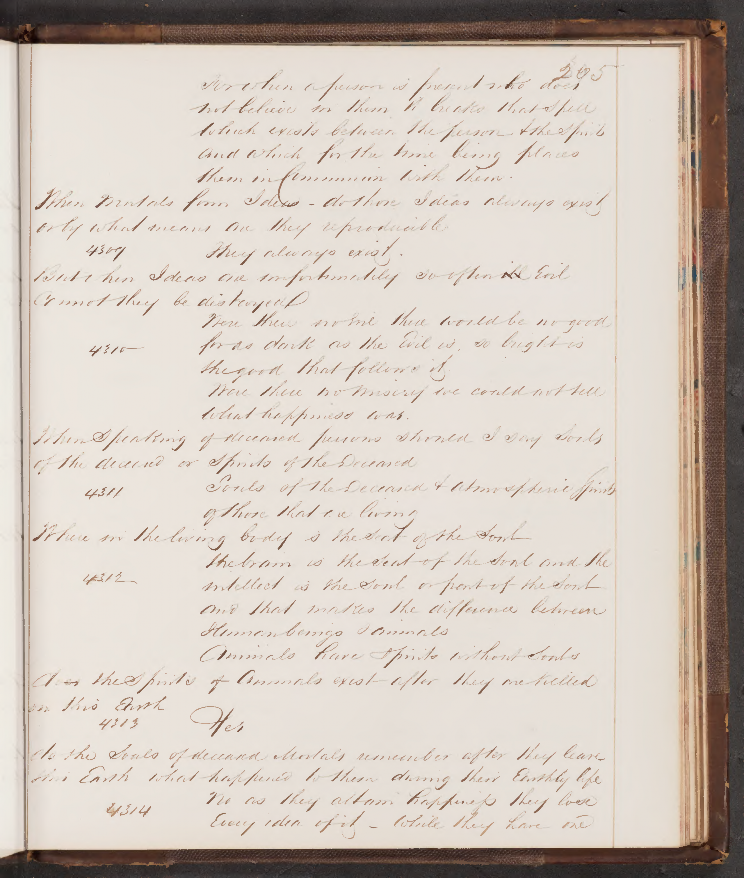 205
For when a person is present who does
not believe in them it breaks that spell
which exists between the person & the Spirit
and which for the time being places
them in Communion with them.
When Mortals form Ideas - do those Ideas always exist
or by what means are they reproducible
4309 They always exist.
But when Ideas are unfortunately so often Evil
Cannot they be destroyed
Were there no Evil there would be no good
4310 for as dark as the Evil is, so bright is
the good that follows it
Were there no Misery we could not tell
what happiness was.
When Speaking of deceased persons should I say Souls
of the deceased or Spirits of the Deceased
4311 Souls of the Deceased & atmospheric Spirits
of those that are living
Where in the living body is the Seat of the Soul
The brain is the Seat of the Soul and the
4312 intellect is the Soul or part of the Soul
and that makes the difference between
Human beings & animals
Animals have Spirits without Souls
Do the Spirits of Animals exist after they are killed
on this Earth
4313 Yes
Do the Souls of deceased Mortals remember after they leave
this Earth what happened to them during their Earthly life
No as they attain happiness they lose
4314 Every idea of it - While they have one